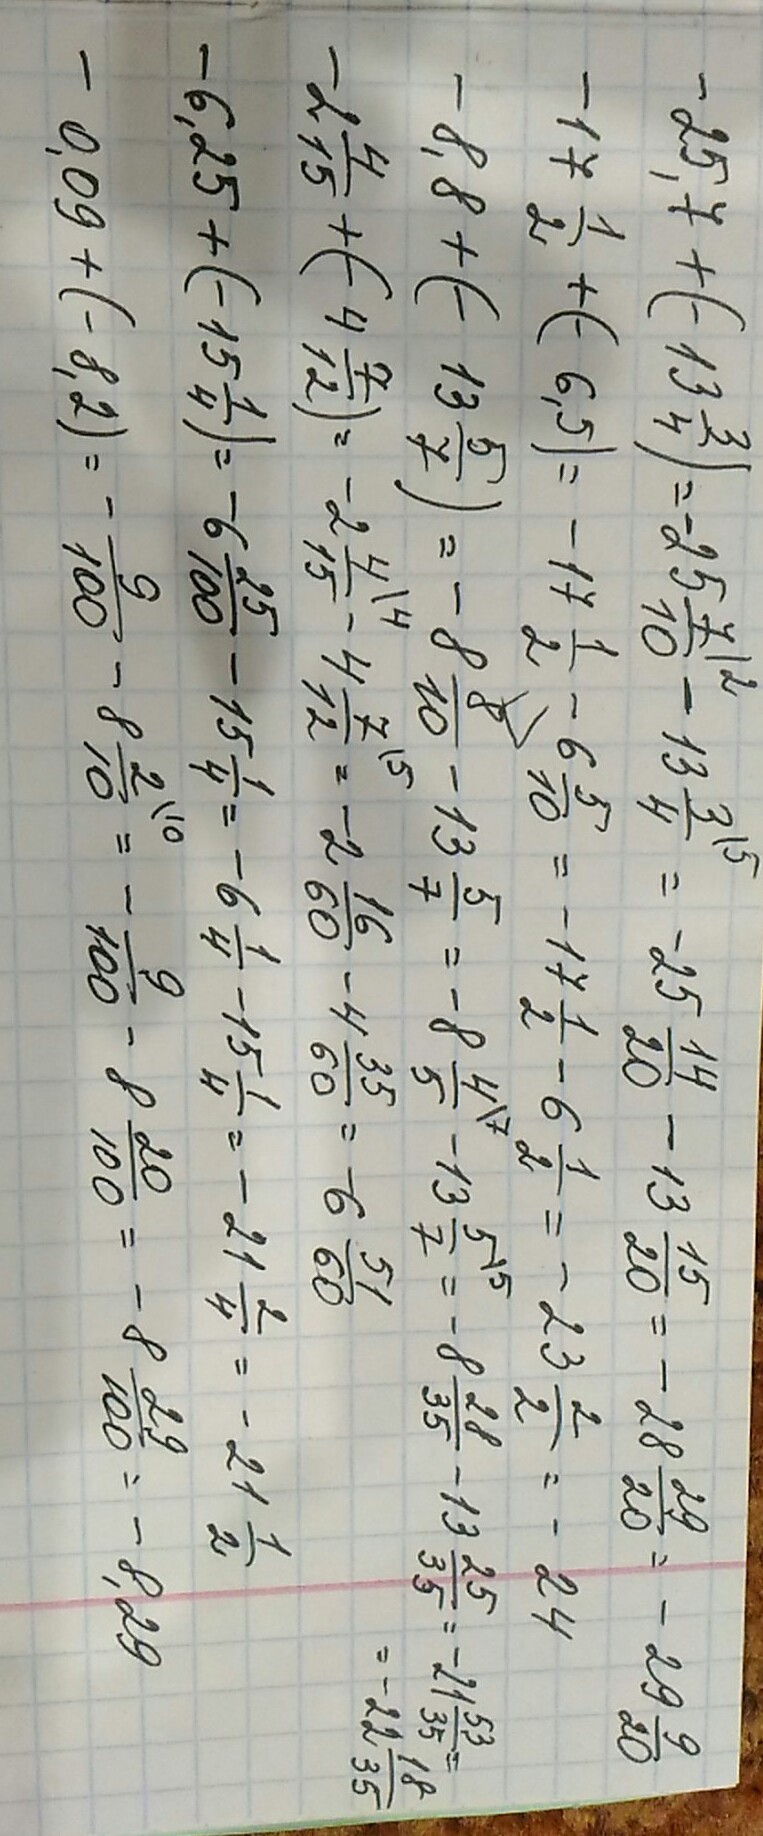 -25,7 + (-13 3/4) = -25 7/10\2 - 13 3/4\5 = -25 14/20 - 13 15/20 = -28 29/20 = -29 9/20
-17 1/2 + (-6,5) = -17 1/2 - 6 5/10 = -17 1/2 - 6 1/2 = -23 2/2 = -24
-8,8 + (-13 5/7) = -8 8/10 - 13 5/7 = -8 4/5\7 - 13 5/7\5 = -8 28/35 - 13 25/35 = -21 53/35 =
= -22 18/35
-2 4/15 + (-4 7/12) = -2 4/15\4 - 4 7/12\5 = -2 16/60 - 4 35/60 = -6 51/60
-6,25 + (-15 1/4) = -6 25/100 - 15 1/4 = -6 1/4 - 15 1/4 = -21 2/4 = -21 1/2
-0,09 + (-8,2) = -9/100 - 8 2/10\10 = -9/100 - 8 20/100 = -8 29/100 = -8,29